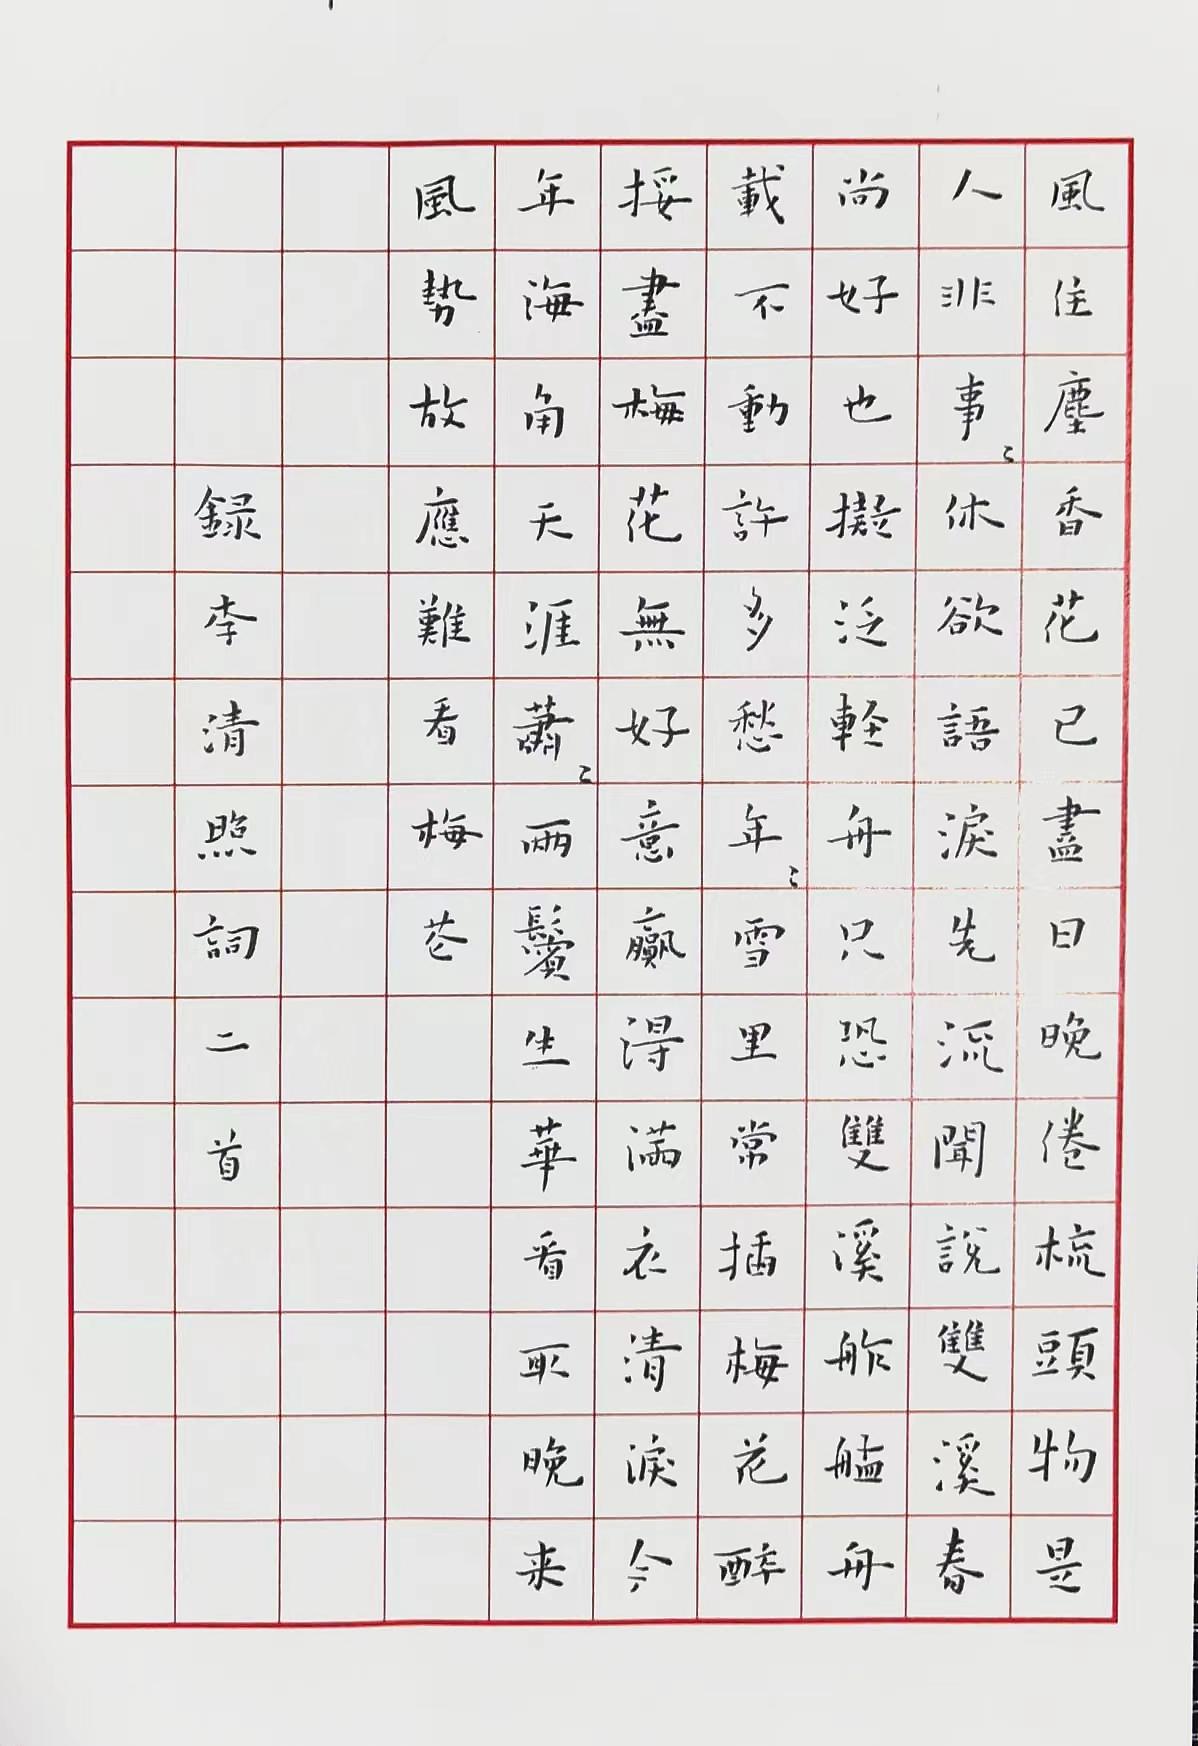 風住塵香花已盡日晚倦梳頭物是
人非事〻休欲語淚先流聞說雙溪春
尚好也擬泛軽舟只恐雙溪舴艋舟
載不動許多愁年〻雪里常插梅花醉
挼盡梅花無好意贏得滿衣清淚今
年海角天涯蕭〻兩鬢生華看取晚来
風勢故應難看梅花
録李清照詞二首